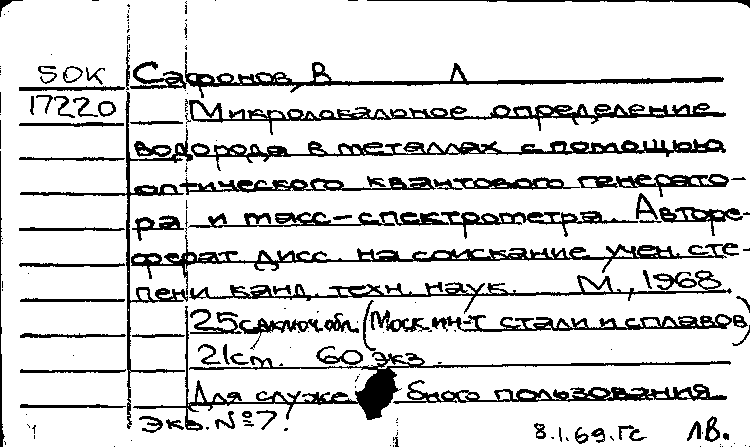 50К Сафронов, В Л
17220 Микролокальное определение
водорода в металлах с помощью
оптического квантового генерато-
ра и масс-спектрометра. Авторе-
ферат дисс. на соискание учен. сте-
пени канд. техн. наук. М., 1968.
25с. включ. обл. (Моск. ин-т стали и сплавов)
21см. 60 экз.
Для служебного пользования
Экз. №7.
8.1.69. ГС